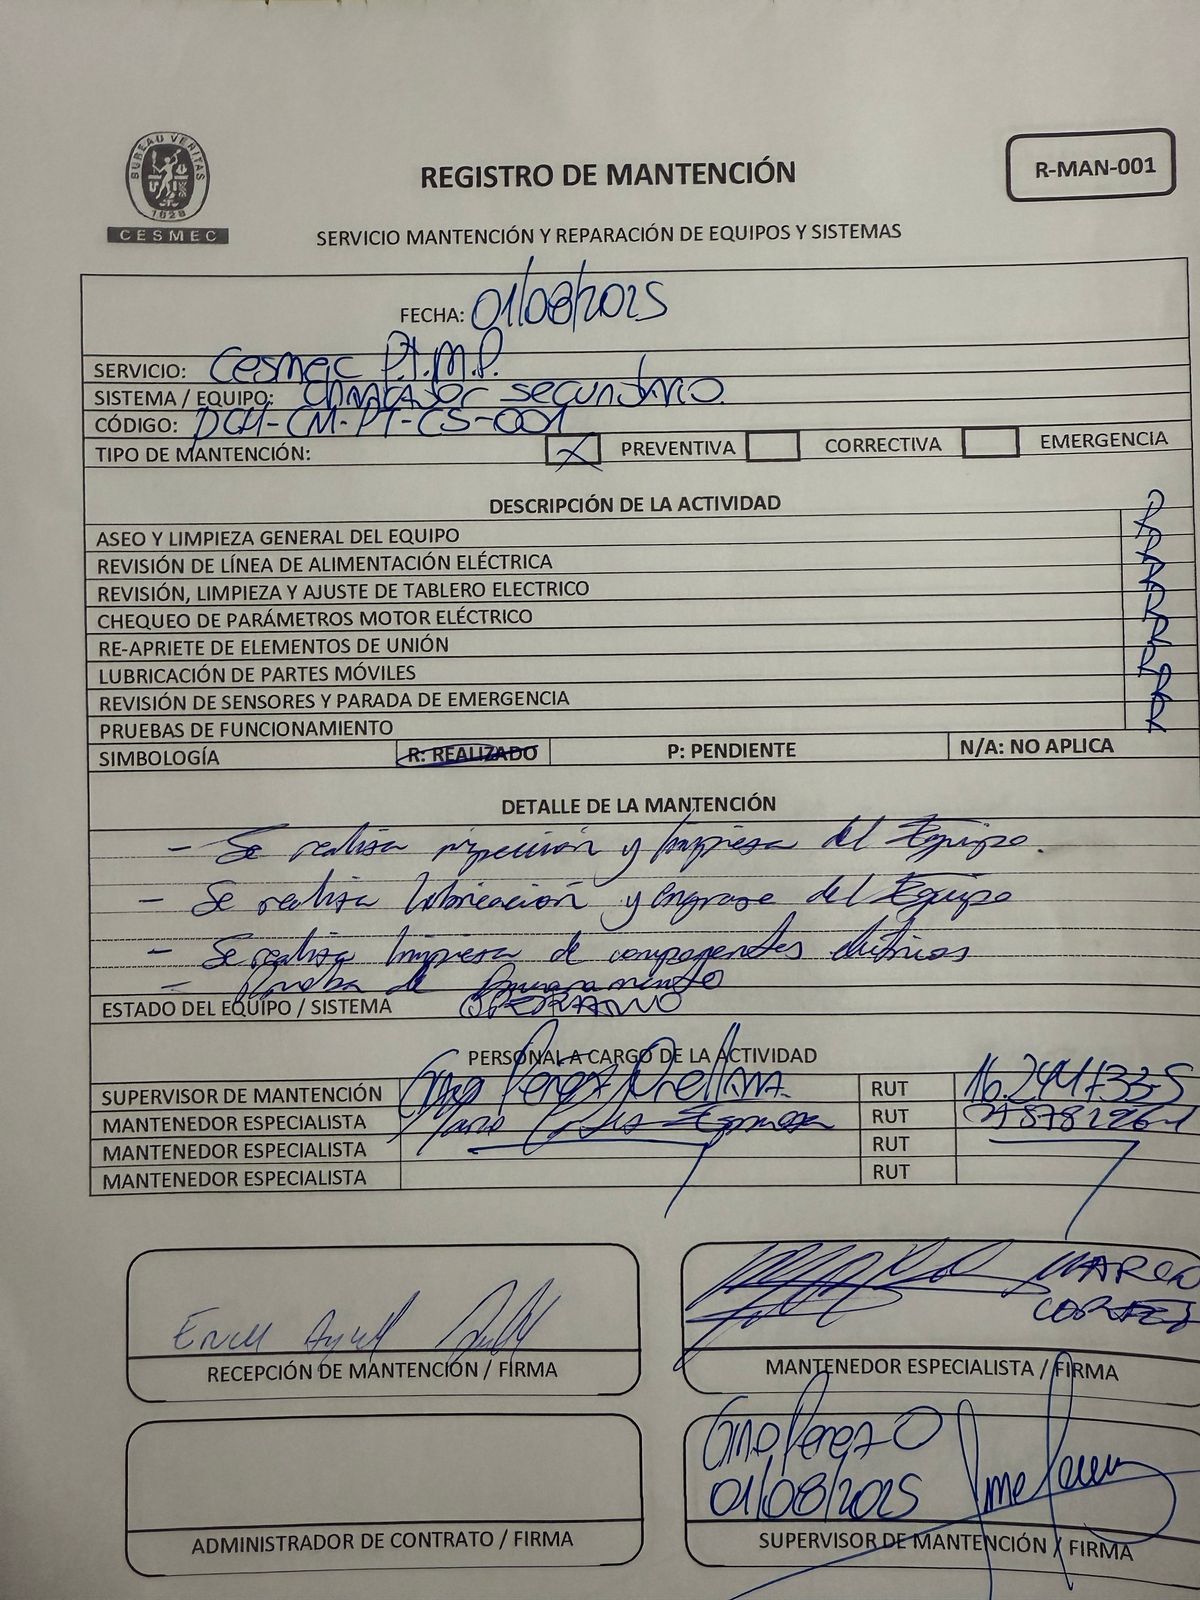 BUREAU VERITAS
1828
CESMEC
REGISTRO DE MANTENCIÓN
R-MAN-001
SERVICIO MANTENCIÓN Y REPARACIÓN DE EQUIPOS Y SISTEMAS
FECHA: 01/08/2025
SERVICIO: Cesmec P.T.M.P.
SISTEMA / EQUIPO: CHANCADOR SECUNDARIO
CÓDIGO: DCH-CM-PT-CS-001
TIPO DE MANTENCIÓN: X PREVENTIVA CORRECTIVA EMERGENCIA
DESCRIPCIÓN DE LA ACTIVIDAD
ASEO Y LIMPIEZA GENERAL DEL EQUIPO R
REVISIÓN DE LÍNEA DE ALIMENTACIÓN ELÉCTRICA R
REVISIÓN, LIMPIEZA Y AJUSTE DE TABLERO ELECTRICO R
CHEQUEO DE PARÁMETROS MOTOR ELÉCTRICO R
RE-APRIETE DE ELEMENTOS DE UNIÓN R
LUBRICACIÓN DE PARTES MÓVILES R
REVISIÓN DE SENSORES Y PARADA DE EMERGENCIA R
PRUEBAS DE FUNCIONAMIENTO R
SIMBOLOGÍA R: REALIZADO P: PENDIENTE N/A: NO APLICA
DETALLE DE LA MANTENCIÓN
- Se realiza inspección y limpiesa del Equipo.
- Se realiza lubricación y engrase del Equipo
- Se realiza limpiesa de componentes eléctricos
- Prueba de funcionamiento
ESTADO DEL EQUIPO / SISTEMA OPERATIVO
PERSONAL A CARGO DE LA ACTIVIDAD
SUPERVISOR DE MANTENCIÓN Gino Perez Orellana. RUT 16.244733-5
MANTENEDOR ESPECIALISTA Espinosa RUT
MANTENEDOR ESPECIALISTA RUT
MANTENEDOR ESPECIALISTA RUT
Erick
RECEPCIÓN DE MANTENCIÓN / FIRMA
MARCO
CORTES
MANTENEDOR ESPECIALISTA / FIRMA
Gino Perez O
01/08/2025
ADMINISTRADOR DE CONTRATO / FIRMA
SUPERVISOR DE MANTENCIÓN / FIRMA